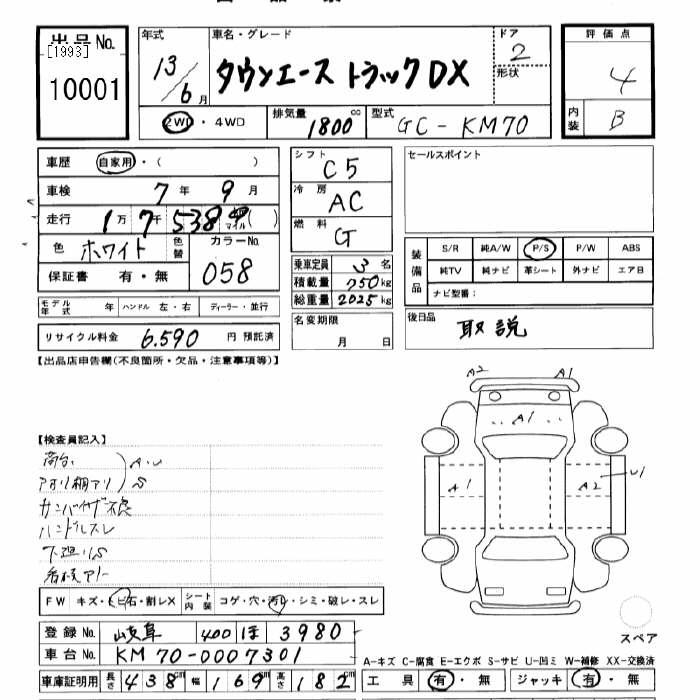 出品No.
[1993]
10001
年式
13/6月
車名・グレード
タウンエース トラック DX
ドア
2
形状
評価点
4
内装
B
2WD・4WD
排気量
1800 cc
型式
GC-KM70
車歴 自家用・( )
車検 7年 9月
走行 1万7千538
マイル( )
色 ホワイト 色替
カラーNo.
058
保証書 有・無
モデル年式 年 ハンドル 左・右 ディーラー・並行
リサイクル料金 6.590 円 預託済
シフト
C5
冷房
AC
燃料
G
乗車定員 3名
積載量 750kg
総重量 2025kg
名変期限
月 日
セールスポイント
装備品
S/R 純A/W P/S P/W ABS
純TV 純ナビ 革シート 外ナビ エアB
ナビ型番:
後日品
取説
【出品店申告欄(不良箇所・欠品・注意事項等)】
【検査員記入】
荷台 A.U
アオリ柵アリ S
サンバイザー不良
ハンドルスレ
下廻りS
看板アトー
A2 A1
A1
A1 A2 U1
FW キズ・ヒビ石・割レX シート内装 コゲ・穴・汚レ・シミ・破レ・スレ
登録No. 岐阜 400 ほ 3980
車台No. KM70-0007301
車庫証明用 長さ 438cm 幅 169cm 高さ 182cm
スペア
A-キズ C-腐食 E-エクボ S-サビ U-凹ミ W-補修 XX-交換済
工具 有・無 ジャッキ 有・無